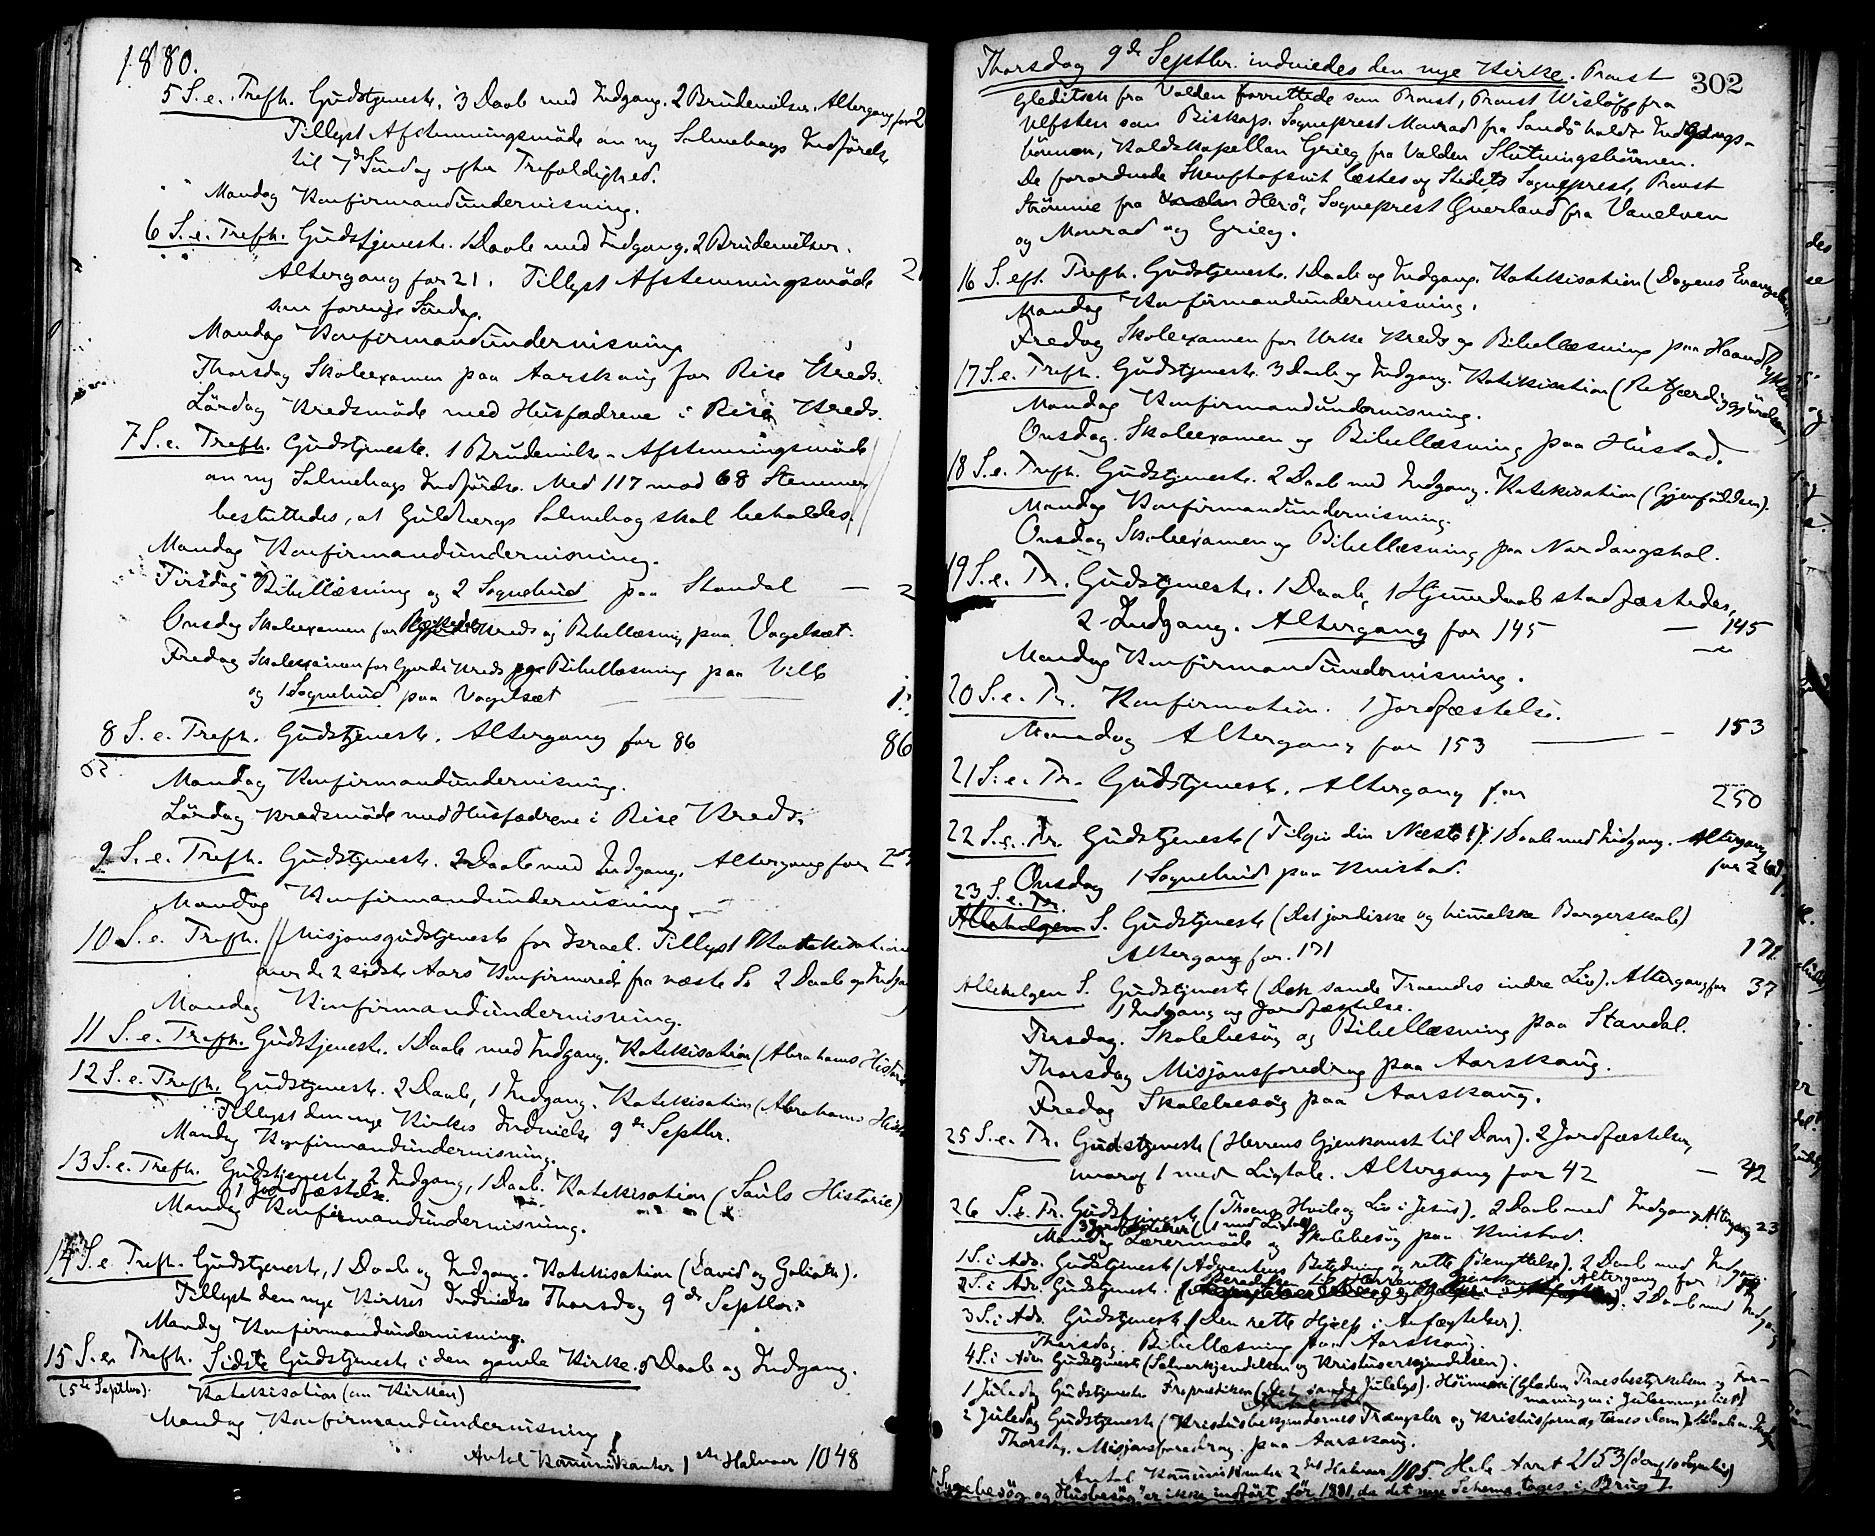 1880.
5 S. e. Trefh. Gudstjeneste. 3 Daab med Indgang. 2 Brudevielser. Altergang for 2
Tillyst Afstemningsmöde om ny Salmebogs Indförelse
til 7de Söndag efter Trefoldighed.
Mandag Konfirmandundervisning.
6 S. e. Trefh. Gudstjeneste. 1 Daab med Indgang. 2 Brudevielser.
Altergang for 21. Tillyst Afstemningsmöde 21
som forrige Söndag.
Mandag Konfirmandundervisning
Thorsdag Skoleexamen paa Aarskoug for Rise Kreds.
Lördag Kredsmöde med Husfædrene i Rise Kreds.
7 S. e. Trefh. Gudstjeneste. 1 Brudevielse. Afstemningsmöde
om ny Salmebogs Indförelse. Med 117 mod 68 Stemmer
besluttedes, at Guldbergs Salmebog skal beholdes.
Mandag Konfirmandundervisning.
Tirsdag Bibellæsning og 2 Sognebud paa Standal — 2
Onsdag Skoleexamen for Kreds og Bibellæsning paa Vagelsæt.
Fredag Skoleexamen for Gjerde Kreds og Bibellæsning paa Vilb
og 1 Sognebud paa Vagelsæt 1
8 S. e. Trefh. Gudstjeneste. Altergang for 86 86
Mandag Konfirmandundervisning.
Lördag Kredsmöde med Husfædrene i Rise Kreds.
9 S. e. Trefh. Gudstjeneste. 2 Daab med Indgang. Altergang for
Mandag Konfirmandundervisning.
10 S. e. Trefh. Misjonsgudstjeneste for Israel. Tillyst Katekisation
over de 2 sidste Aars Konfirmerede fra næste S. 2 Daab og Indga
Mandag Konfirmandundervisning.
11 S. e. Trefh. Gudstjeneste. 1 Daab med Indgang. Katekisation (Abrahams Historie
12 S. e. Trefh. Gudstjeneste. 2 Daab, 1 Indgang. Katekisation (Abrahams Histo
Tillyst den nye Kirkes Indvielse 9de Septbr.
Mandag Konfirmandundervisning.
13 S. e. Trefh. Gudstjeneste. 2 Indgang, 1 Daab. Katekisation (Sauls Historie)
1 Jordfæstelse.
Mandag Konfirmandundervisning.
14 S. e. Trefh. Gudstjeneste, 1 Daab og Indgang. Katekisation (David og Goliath).
Tillyst den nye Kirkes Indvielse Thorsdag 9de Septbr.
Mandag Konfirmandundervisning.
15 S. e. Trefh. Sidste Gudstjeneste i den gamle Kirke. 5 Daab og Indgang.
(5te Septbr). Katekisation (om Kirken)
Mandag Konfirmandundervisning
Antal Kommunikanter 1ste Halvaar 1048
302
Thorsdag 9de Septbr. indviedes den nye Kirke. Provst
Gleditsch fra Volden forrettede som Provst, Provst Wislöff fra
Ulfsten som Biskop. Sogneprest Monrad fra Sandö holdt Indgangs-
bönnen, Kaldskapellan Grieg fra Volden Slutningsbönnen.
De forordnede Skriftafsnit læstes og Stedets Sogneprest, Provst
Strömme fra Herö, Sogneprest Qverland fra Vanelven
og Monrad og Grieg.
16 S. eft. Trefh. Gudstjeneste. 1 Daab og Indgang. Katekisation (Dagens Evangelium)
Mandag Konfirmandundervisning.
Fredag Skoleexamen for Urke Kreds og Bibellæsning paa Haandlykken
17 S. e. Trefh. Gudstjeneste. 3 Daab og Indgang. Katekisation (Retfærdiggjörelsen)
Mandag Konfirmandundervisning.
Onsdag. Skoleexamen og Bibellæsning paa Hustad.
18 S. e. Trefh. Gudstjeneste. 2 Daab med Indgang. Katekisation (Gjenfödelsen).
Mandag Konfirmandundervisning.
Onsdag Skoleexamen og Bibellæsning paa Nordangsdal.
19 S. e. Tr. Gudstjeneste. 1 Daab, 1 Hjemmedaab stadfæstedes,
2 Indgang. Altergang for 145 — 145
Mandag Konfirmandundervisning.
20 S. e. Tr. Konfirmation. 1 Jordfæstelse.
Mandag Altergang for 153 — 153
21 S. e. Tr. Gudstjeneste. Altergang for 250
22 S. e. Tr. Gudstjeneste (Tilgiv din Næste!). 1 Daab med Indgang. Altergang
for
Onsdag 1 Sognebud paa Knistad.
23 S. e. Tr.
Allehelgen S. Gudstjeneste (Det jordiske og himmelske Borgerskab)
Altergang for 171 171
Allehelgen S. Gudstjeneste (Den sande Troendes indre Liv). Altergang for 37
1 Indgang og Jordfæstelse.
Tirsdag. Skolebesög og Bibellæsning paa Standal.
Thorsdag Misjonsforedrag paa Aarskoug.
Fredag Skolebesög paa Aarskoug.
25 S. e. Tr. Gudstjeneste (Herrens Gjenkomst til Dom). 2 Jordfæstelser,
hvoraf 1 med Ligtale. Altergang for 42 — 42
26 S. e. Tr. Gudstjeneste (Troens Hvile og Liv i Jesus). 2 Daab med Indgang. Altergang 23
3 Jordfæstelser (1 med Ligtale)
Mandag Lærermöde og Skolebesög paa Knistad.
1 S. i Adv. Gudstjeneste (Adventens Betydning og rette Benyttelse). 2 Daab med Indgang.
2 S. i Adv. Gudstjeneste. (Beredelsen til Herrens Gjenkomst). Altergang for
2 Daab med Indgang
3 S. i Adv. Gudstjeneste (Den rette Hjælp i Anfægtelser).
Thorsdag. Bibellæsning paa Aarskoug.
4 S. i Adv. Gudstjeneste (Selverkjendelsen og Kristuserkjendelsen).
1 Juledag Gudstjeneste Froprædiken (Det sande Julelys). Höimesse (Glæden, Troesbestyrkelsen og For-
maningen i Juleevangeliet)
2 Juledag Gudstjeneste (Kristusbekjendernes Trængsler og Kristusfornægternes Dom). Daab m. Indg
Thorsdag. Misjonsforedrag paa Aarskoug.
Antal Kommunikanter 2det Halvaar 1105. Hele Aaret 2153 (deraf 10 Sognebud)
Sygebesög og Husbesög er ikke indfört för 1881, da det nye Schema tages i Brug